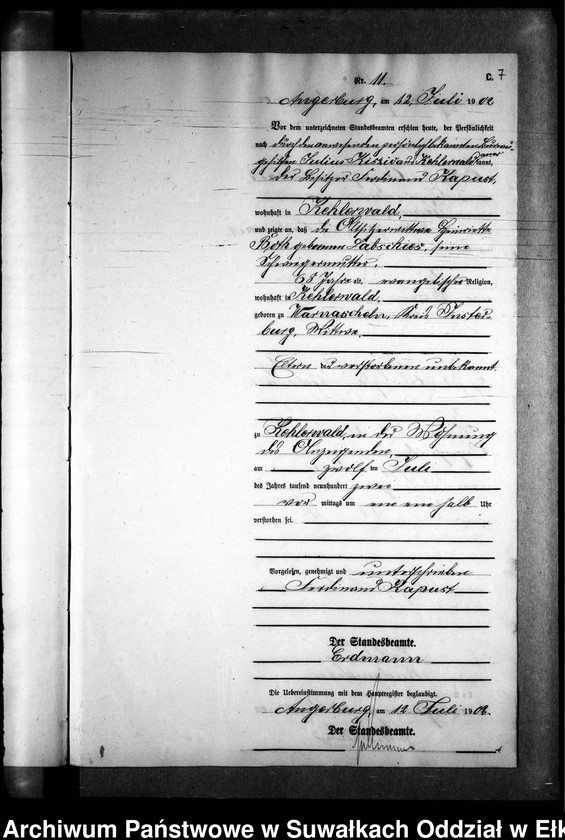 C. 7
Nr. 11.
Angerburg, am 12. Juli 1902
Vor dem unterzeichneten Standesbeamten erschien heute, der Persönlichkeit
nach durch den anwesenden persönlich bekannten
gehilfen Julius aus Kehlerwald kannt,
der Besitzer Ferdinand Kapust,
wohnhaft in Kehlerwald,
und zeigte an, daß die Altsitzerwittwe Henriette
Both geborenen Labschies, seine
Schwiegermutter,
Jahre alt, evangelischer Religion,
wohnhaft in Kehlerwald,
geboren zu Kreis Inster-
burg, Wittwe,
Eltern der verstorbenen unbekannt.
zu Kehlerwald, in der Wohnung
des Anzeigenden,
am zwölften Juli
des Jahres tausend neunhundert zwei
vor mittags um ein ein halb Uhr
verstorben sei.
Vorgelesen, genehmigt und unterschrieben
Ferdinand Kapust
Der Standesbeamte.
Erdmann
Die Uebereinstimmung mit dem Hauptregister beglaubigt.
Angerburg, am 12. Juli 1902.
Der Standesbeamte.
Archiwum Państwowe w Suwałkach Oddział w Ełk